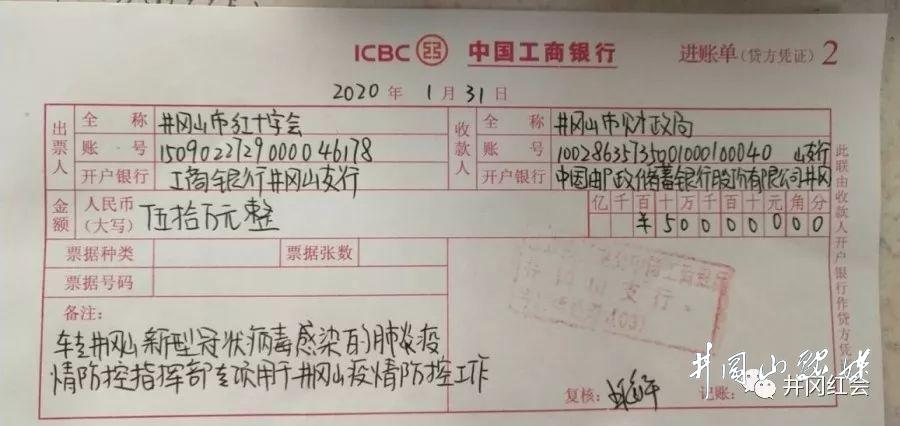 ICBC 中国工商银行 进账单(贷方凭证) 2
2020 年 1 月 31 日
出票人
全称 井冈山市红十字会
账号 1509022729000046178
开户银行 工商银行井冈山支行
收款人
全称 井冈山市财政局
账号 10028635735001000100040 山支行
开户银行 中国邮政储蓄银行股份有限公司井冈
金额 人民币(大写) 伍拾万元整
亿千百十万千百十元角分
¥50000000
票据种类 票据张数
票据号码
备注:
转井冈山新型冠状病毒感染的肺炎疫
情防控指挥部专项用于井冈山疫情防控工作
支行
(03)
复核: 记账:
此联由收款人开户银行作贷方凭
井冈山融媒
井冈红会